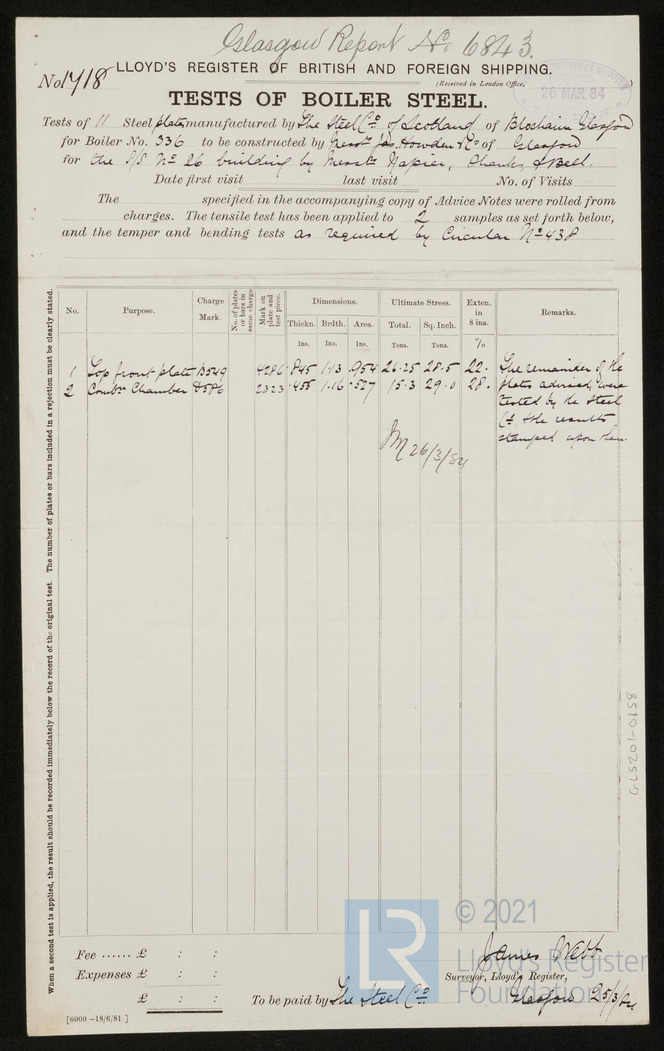 Glasgow Report No. 6843.
No 1718
LLOYD'S REGISTER OF BRITISH AND FOREIGN SHIPPING.
(Received in London Office,
26 MAR. 84
TESTS OF BOILER STEEL.
Tests of 11 Steel plates manufactured by The Steel Co. of Scotland of Blochairn Glasgow
for Boiler No. 336 to be constructed by Messrs Jas. Howden & Co of Glasgow
for the S/S No 26 building by Messrs Napier, Shanks, & Bell.
Date first visit last visit No. of Visits
The specified in the accompanying copy of Advice Notes were rolled from
charges. The tensile test has been applied to 2 samples as set forth below,
and the temper and bending tests as required by Circular No 438
No. Purpose. Charge Mark. No. of plates or bars in same charge Mark on plate and test piece. Dimensions. Ultimate Stress. Exten. in 8 ins. Remarks.
Thickn. Brdth. Area. Total. Sq. Inch.
Ins. Ins. Ins. Tons. Tons. %
1 Top front plate B549 4286 .845 1.13 .954 26.25 28.5 22. The remainder of the
2 Combn Chamber B586 2323 .455 1.16 .527 15.3 29.0 28. plates advised, were
tested by the Steel
Co. & the results
stamped upon them.
26/3/84
When a second test is applied, the result should be recorded immediately below the record of the original test. The number of plates or bars included in a rejection must be clearly stated.
GLS201-0258
© 2021
Fee ...... £ : :
James Webb
LR
Lloyd's Register
Foundation
Expenses £ : :
Surveyor, Lloyd's Register,
£ : :
To be paid by The Steel Co.
Glasgow 25/3/84
[6000 -18/6/81 ]